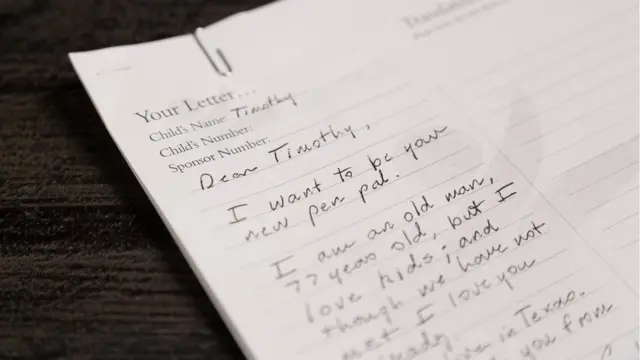 Your Letter...
Child's Name: Timothy
Child's Number:
Sponsor Number:
Dear Timothy,
I want to be your
new pen pal.
I am an old man,
77 years old, but I
love kids; and
though we have not
met I love you
already.
live in Texas.
you from